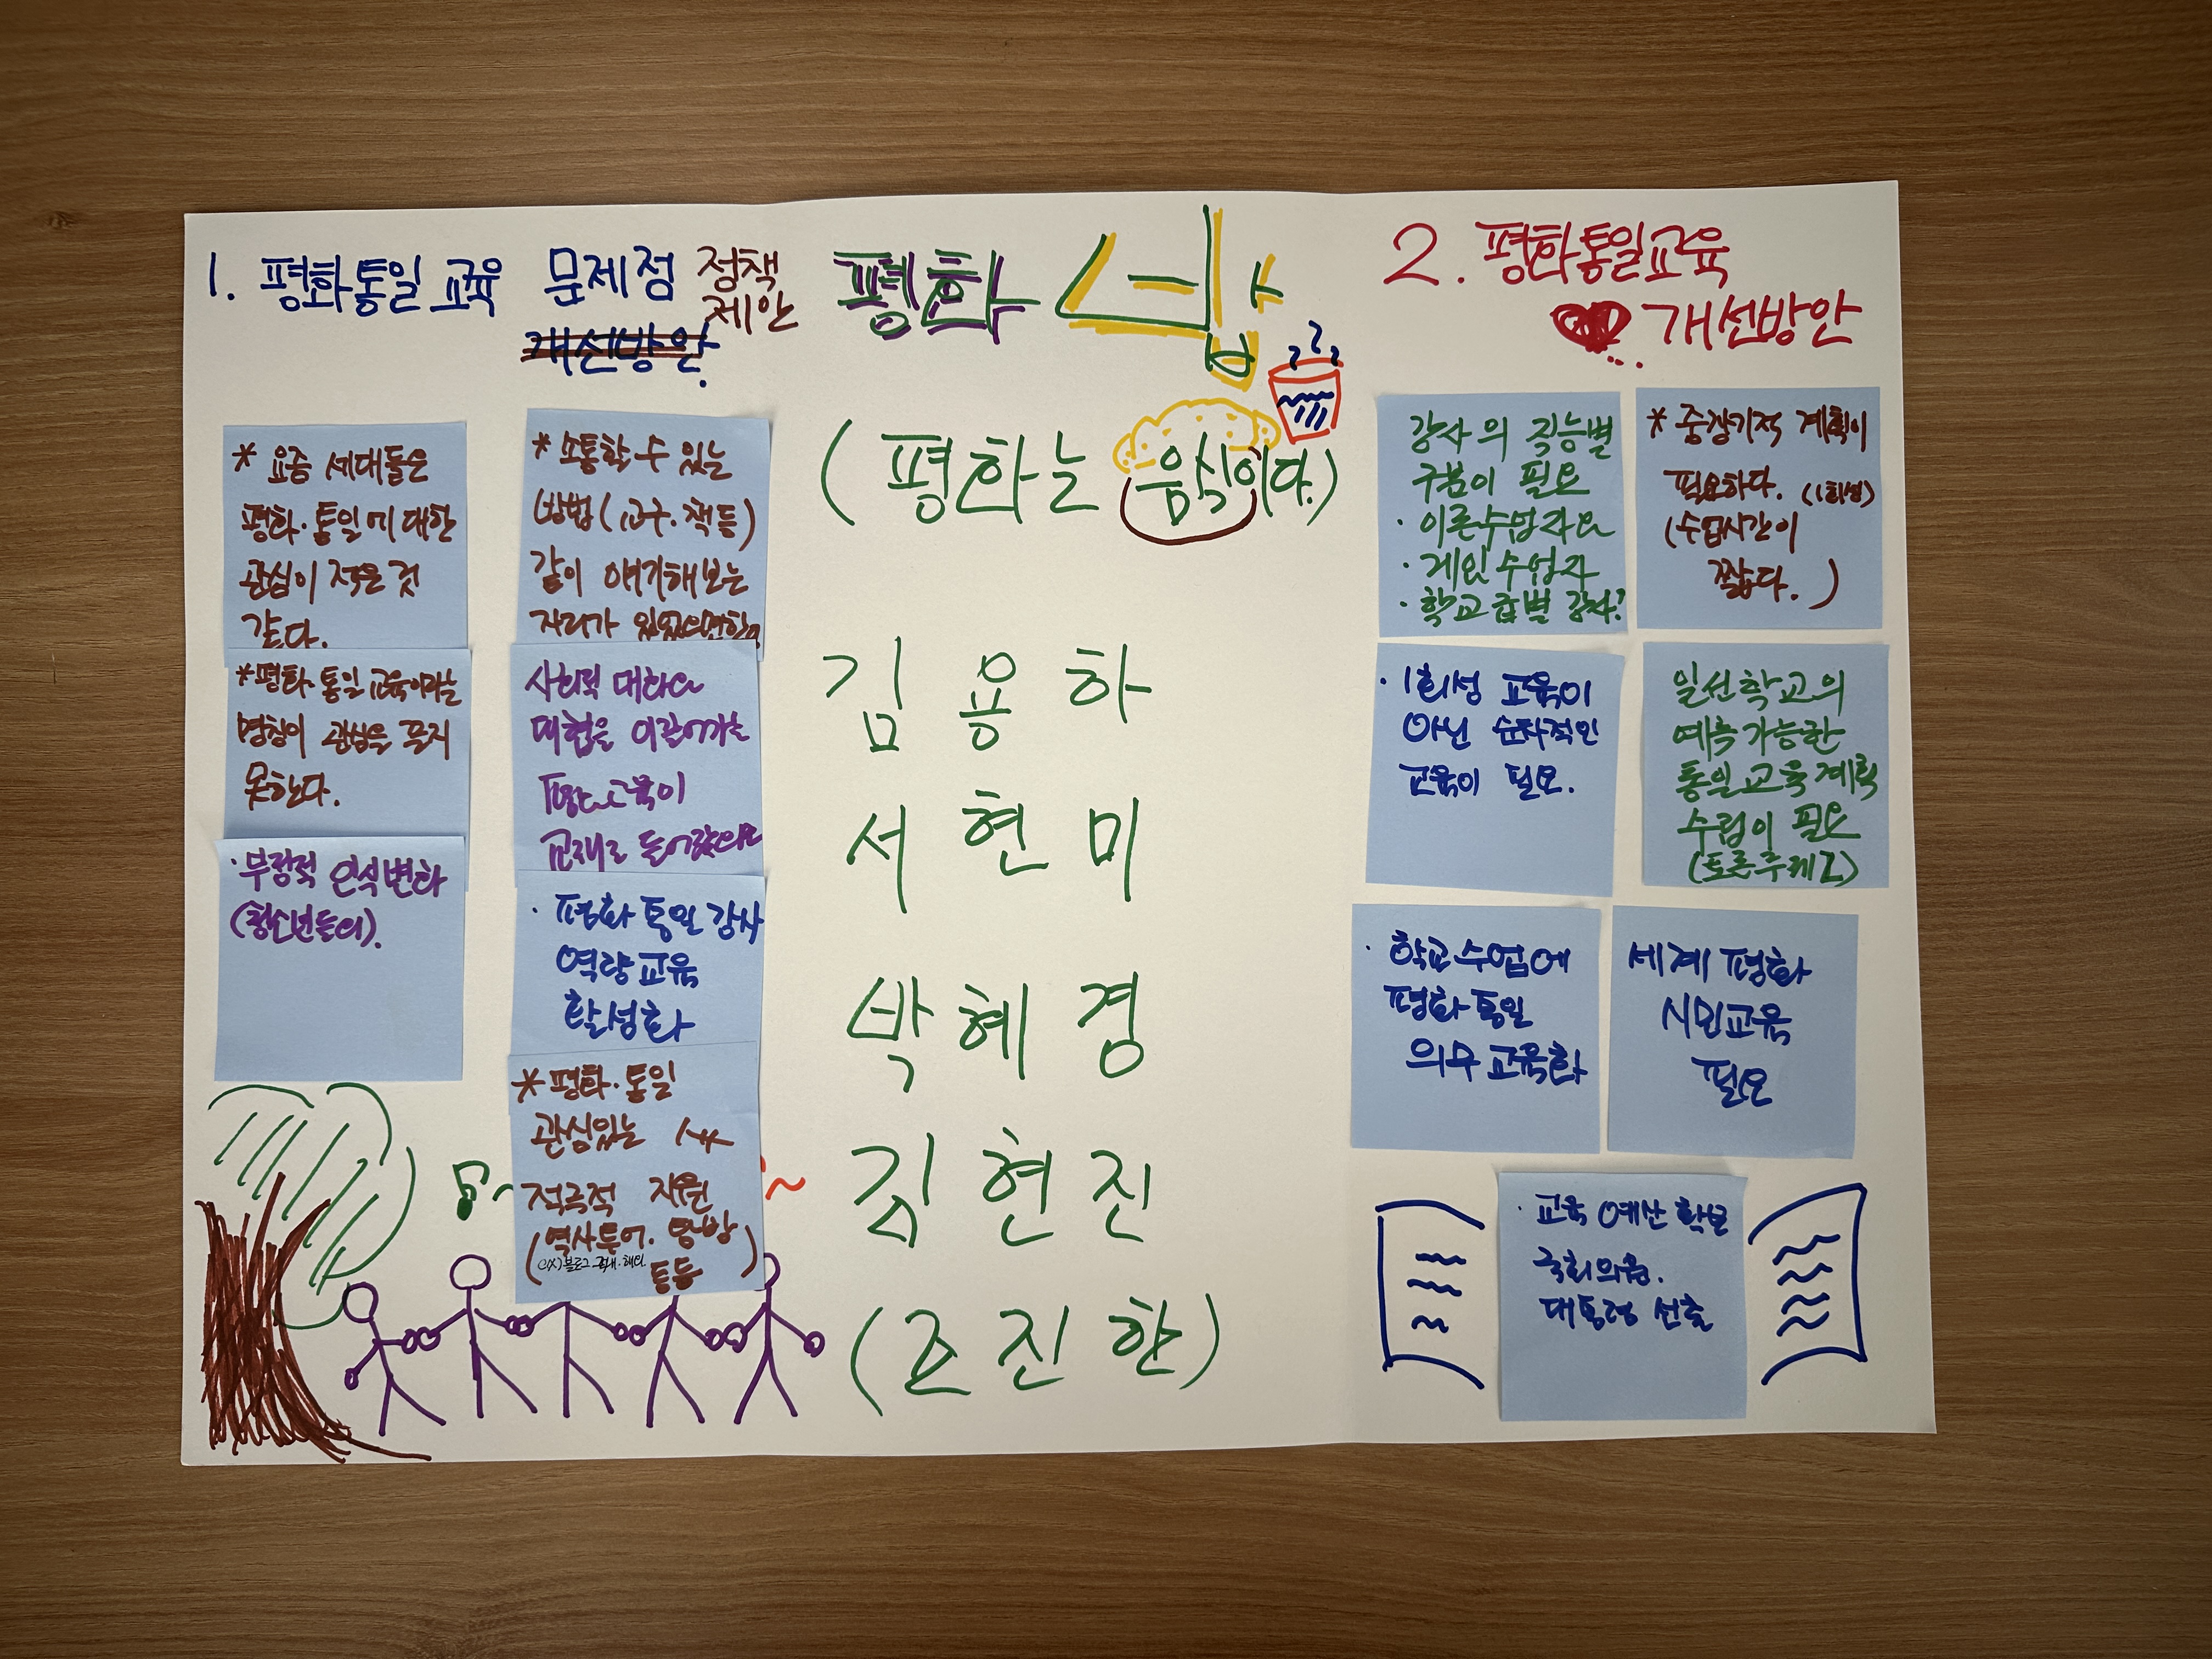 1. 평화통일 교육 문제점 정책
제안
개선방안.
* 요즘 세대들은
평화·통일에 대한
관심이 적은 것
같다.
* 평화·통일 교육이라는
명칭이 관심을 끌지
못한다.
· 부정적 인식변화
(청소년들의).
* 소통할 수 있는
방법(교구·책등)
같이 얘기해보는
자리가 있었으면
사회적 대화와
이끌어가는
교육이
교재로 들어갔으면
· 평화 통일 강사
역량교육
활성화
* 평화·통일
관심있는
적극적 지원
(역사투어. 탐방
ex) 블로그 국내·해외
등등)
평화
(평화는 음식이다.)
김용하
서현미
박혜경
김현진
(조진한)
2. 평화통일교육
개선방안
강사의 직능별
구분이 필요
· 이론수업자와
· 게임수업자
· 학교급별 강사?
* 중장기적 계획이
필요하다. (1회성)
(수업시간이
짧다.)
· 1회성 교육이
아닌 순차적인
교육이 필요.
일선학교의
예측가능한
통일교육계획
수립이 필요
· 학교수업에
평화통일
의무교육화
세계 평화
시민교육
필요
· 교육 예산 확보
국회의원.
대통령 선출